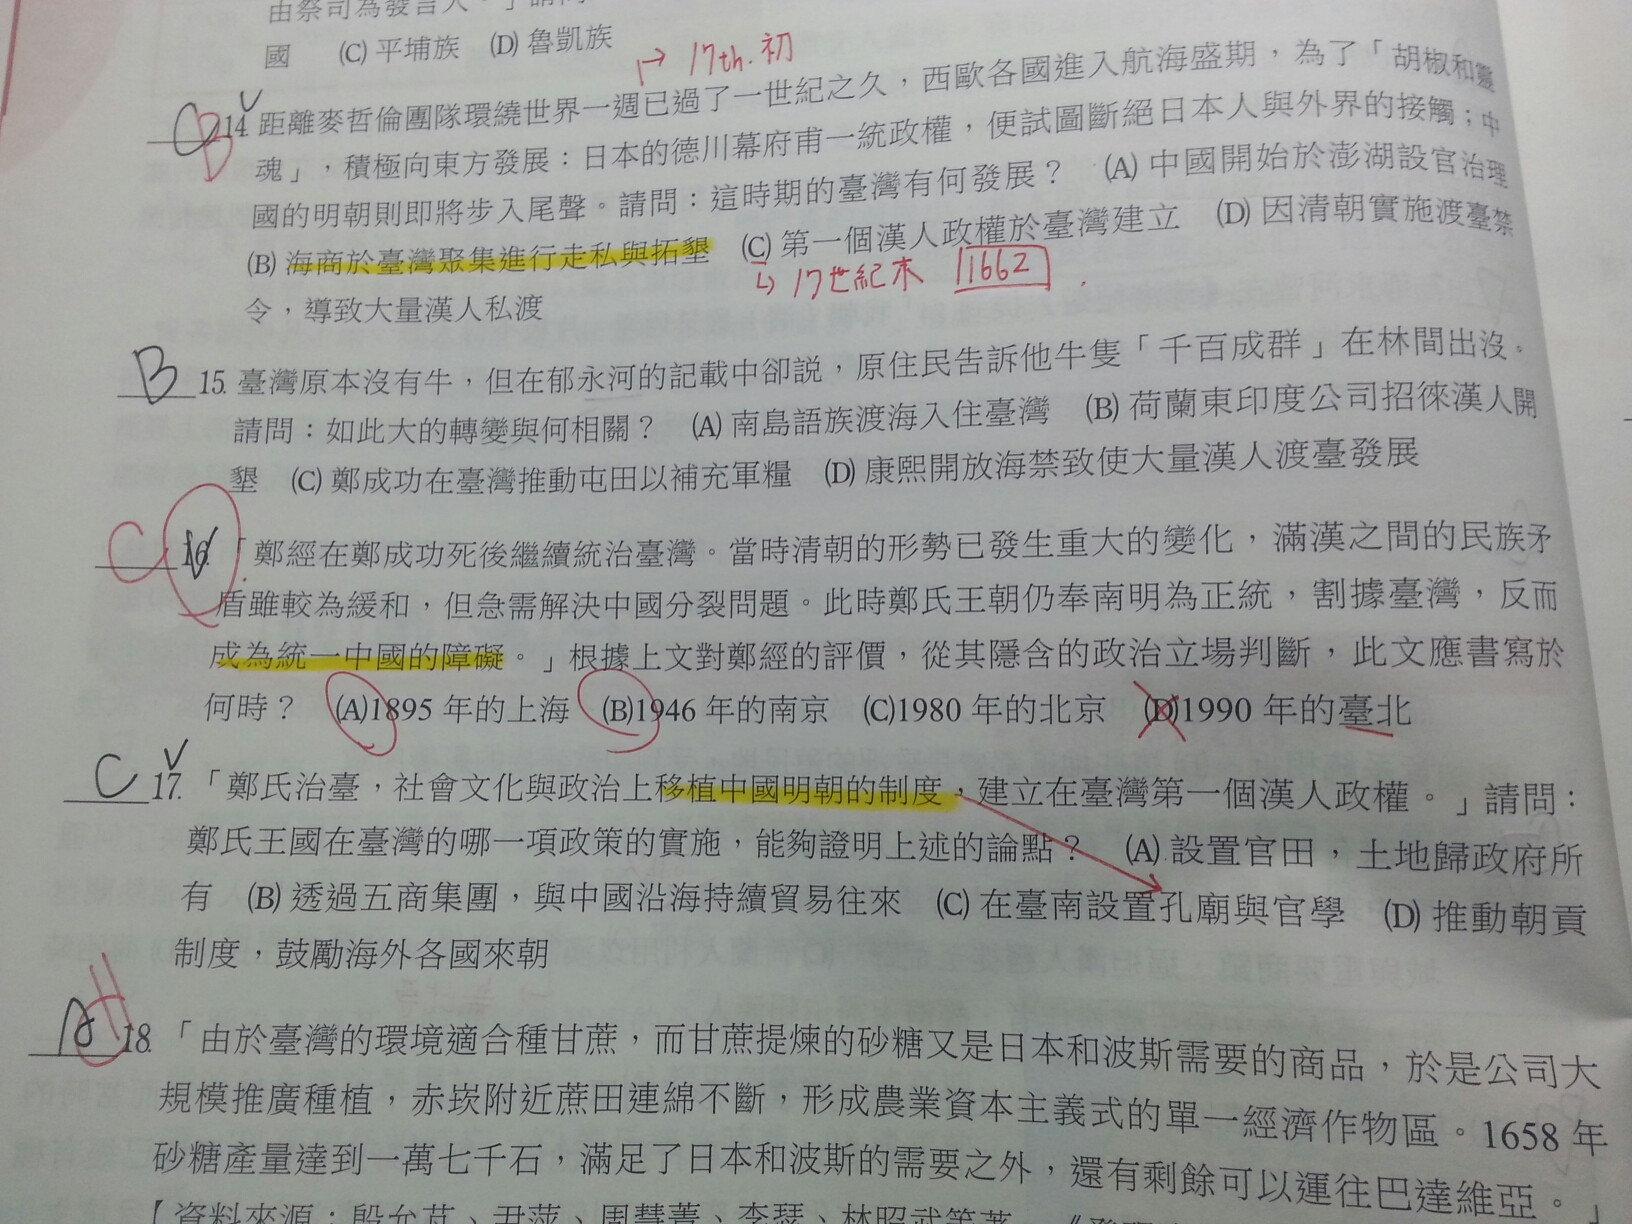 由祭司為發言人。」請問
國 (C) 平埔族 (D) 魯凱族
→ 17th. 初
B 14. 距離麥哲倫團隊環繞世界一週已過了一世紀之久，西歐各國進入航海盛期，為了「胡椒和靈
魂」，積極向東方發展：日本的德川幕府甫一統政權，便試圖斷絕日本人與外界的接觸；中
國的明朝則即將步入尾聲。請問：這時期的臺灣有何發展？ (A) 中國開始於澎湖設官治理
(B) 海商於臺灣聚集進行走私與拓墾 (C) 第一個漢人政權於臺灣建立 (D) 因清朝實施渡臺禁
↳ 17世紀末 1662
令，導致大量漢人私渡
B 15. 臺灣原本沒有牛，但在郁永河的記載中卻說，原住民告訴他牛隻「千百成群」在林間出沒。
請問：如此大的轉變與何相關？ (A) 南島語族渡海入住臺灣 (B) 荷蘭東印度公司招徠漢人開
墾 (C) 鄭成功在臺灣推動屯田以補充軍糧 (D) 康熙開放海禁致使大量漢人渡臺發展
C 16. 「鄭經在鄭成功死後繼續統治臺灣。當時清朝的形勢已發生重大的變化，滿漢之間的民族矛
盾雖較為緩和，但急需解決中國分裂問題。此時鄭氏王朝仍奉南明為正統，割據臺灣，反而
成為統一中國的障礙。」根據上文對鄭經的評價，從其隱含的政治立場判斷，此文應書寫於
何時？ (A)1895 年的上海 (B)1946 年的南京 (C)1980 年的北京 (D)1990 年的臺北
C 17. 「鄭氏治臺，社會文化與政治上移植中國明朝的制度，建立在臺灣第一個漢人政權。」請問：
鄭氏王國在臺灣的哪一項政策的實施，能夠證明上述的論點？ (A) 設置官田，土地歸政府所
有 (B) 透過五商集團，與中國沿海持續貿易往來 (C) 在臺南設置孔廟與官學 (D) 推動朝貢
制度，鼓勵海外各國來朝
18. 「由於臺灣的環境適合種甘蔗，而甘蔗提煉的砂糖又是日本和波斯需要的商品，於是公司大
規模推廣種植，赤崁附近蔗田連綿不斷，形成農業資本主義式的單一經濟作物區。1658 年
砂糖產量達到一萬七千石，滿足了日本和波斯的需要之外，還有剩餘可以運往巴達維亞。」
【資料來源：殷允芃、尹萍、周慧菁、李瑟、林昭武等著，